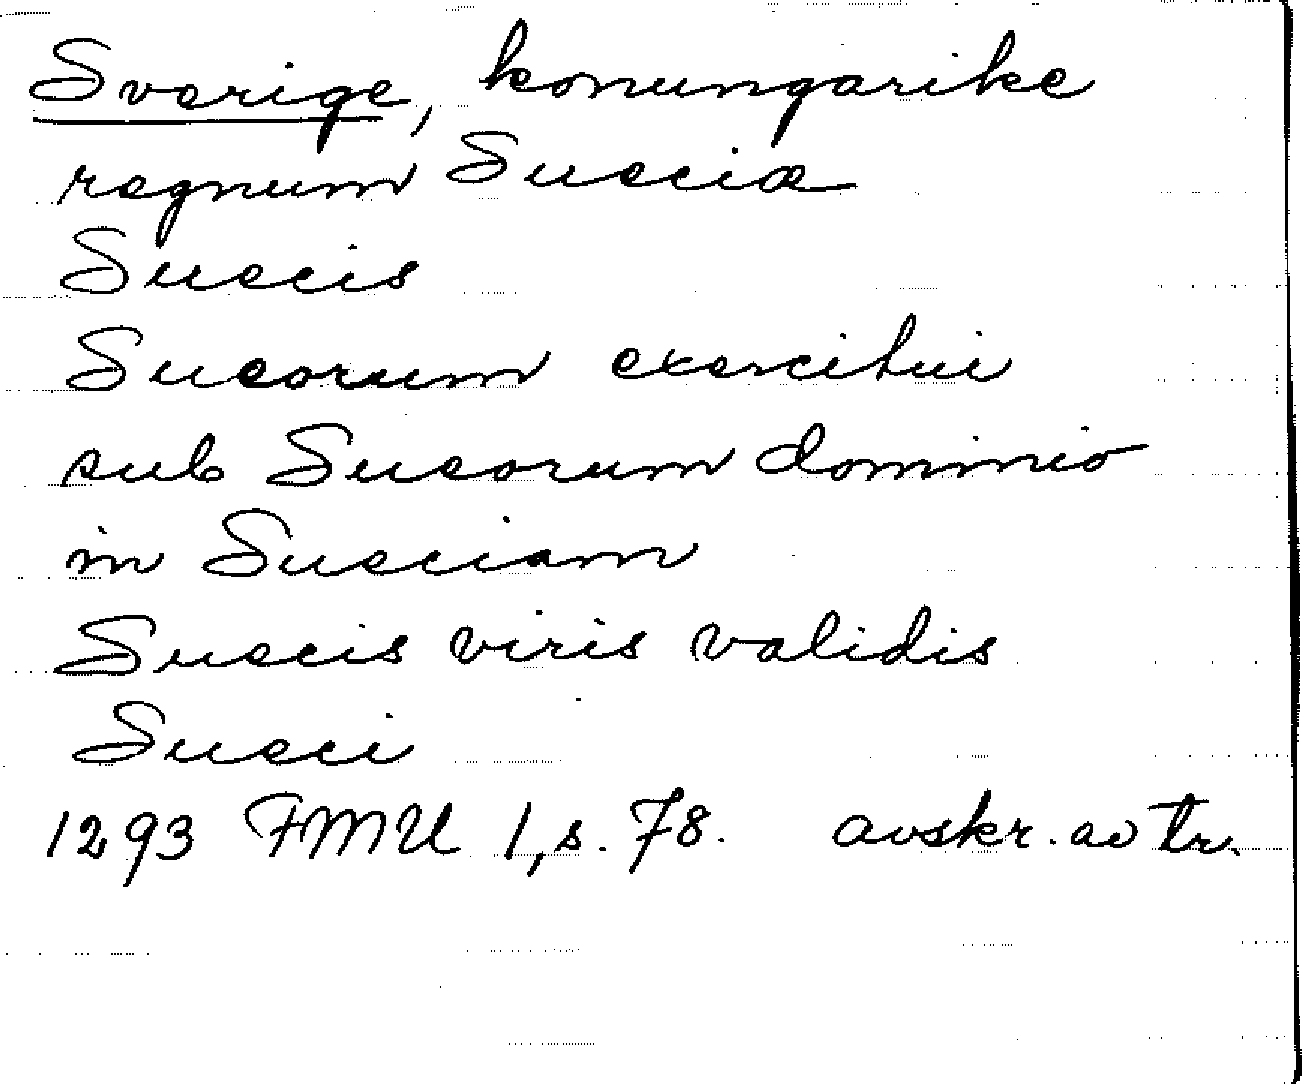 Sverige, konungarike
regnum Sueciæ
Suecis
Sueorum exercitui
sub Sueorum dominio
in Sueciam
Suecis viris validis
Sueci
1293 FMU 1, s. 78. avskr. av tr.